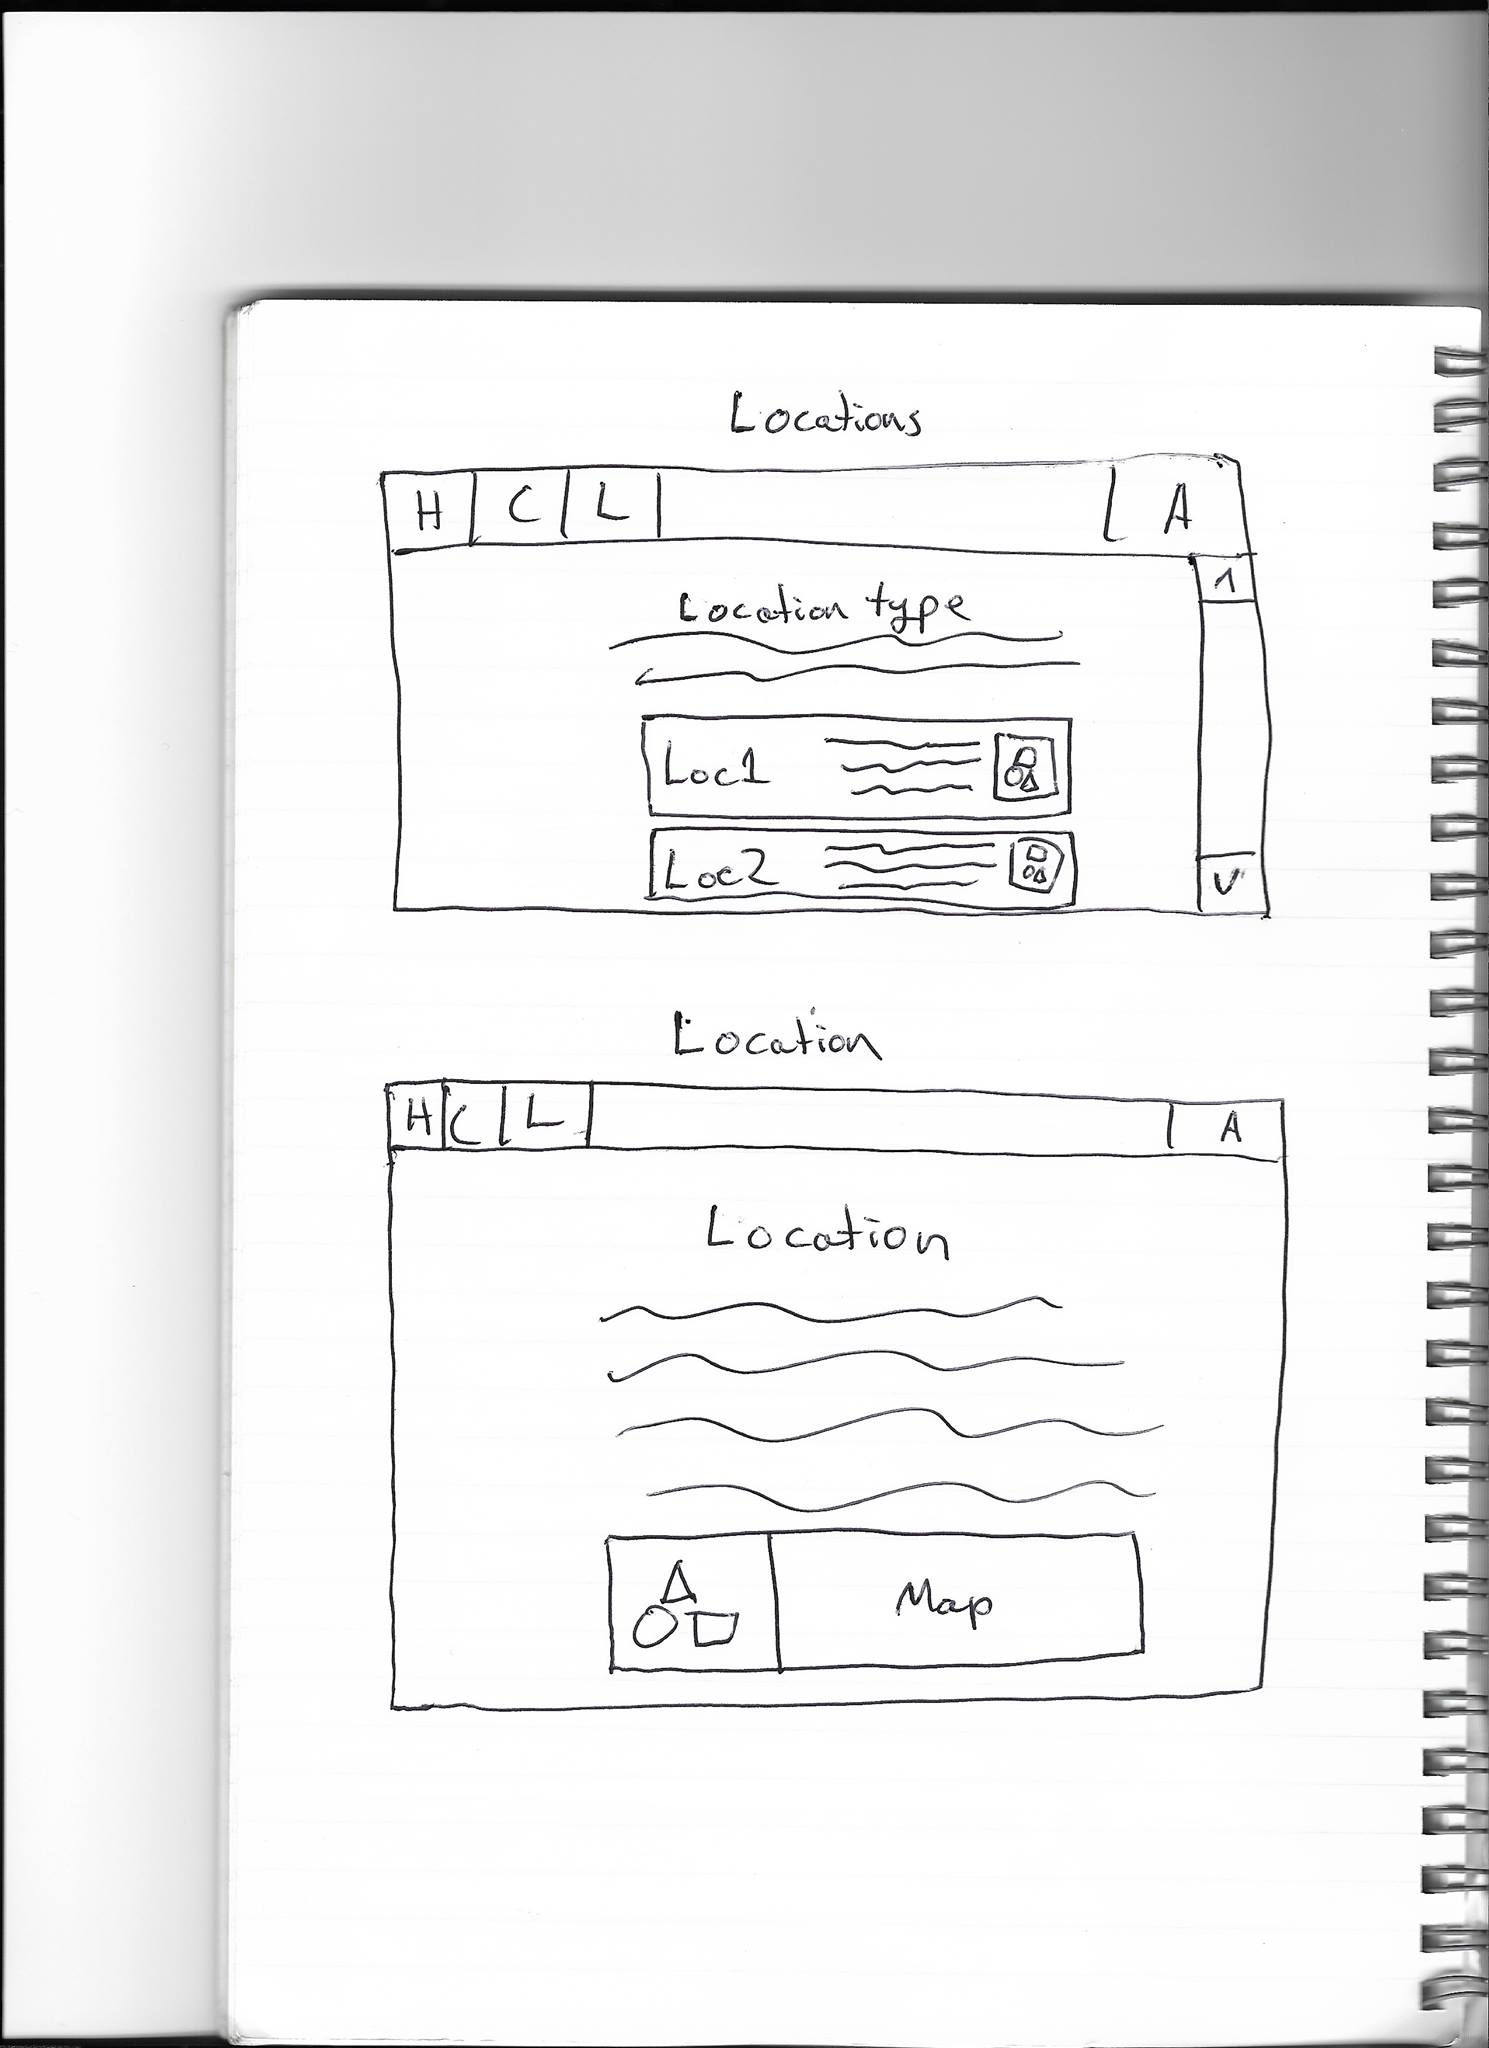 Locations
H C L A
Location type
Loc1
Loc2
Location
H C L A
Location
Map